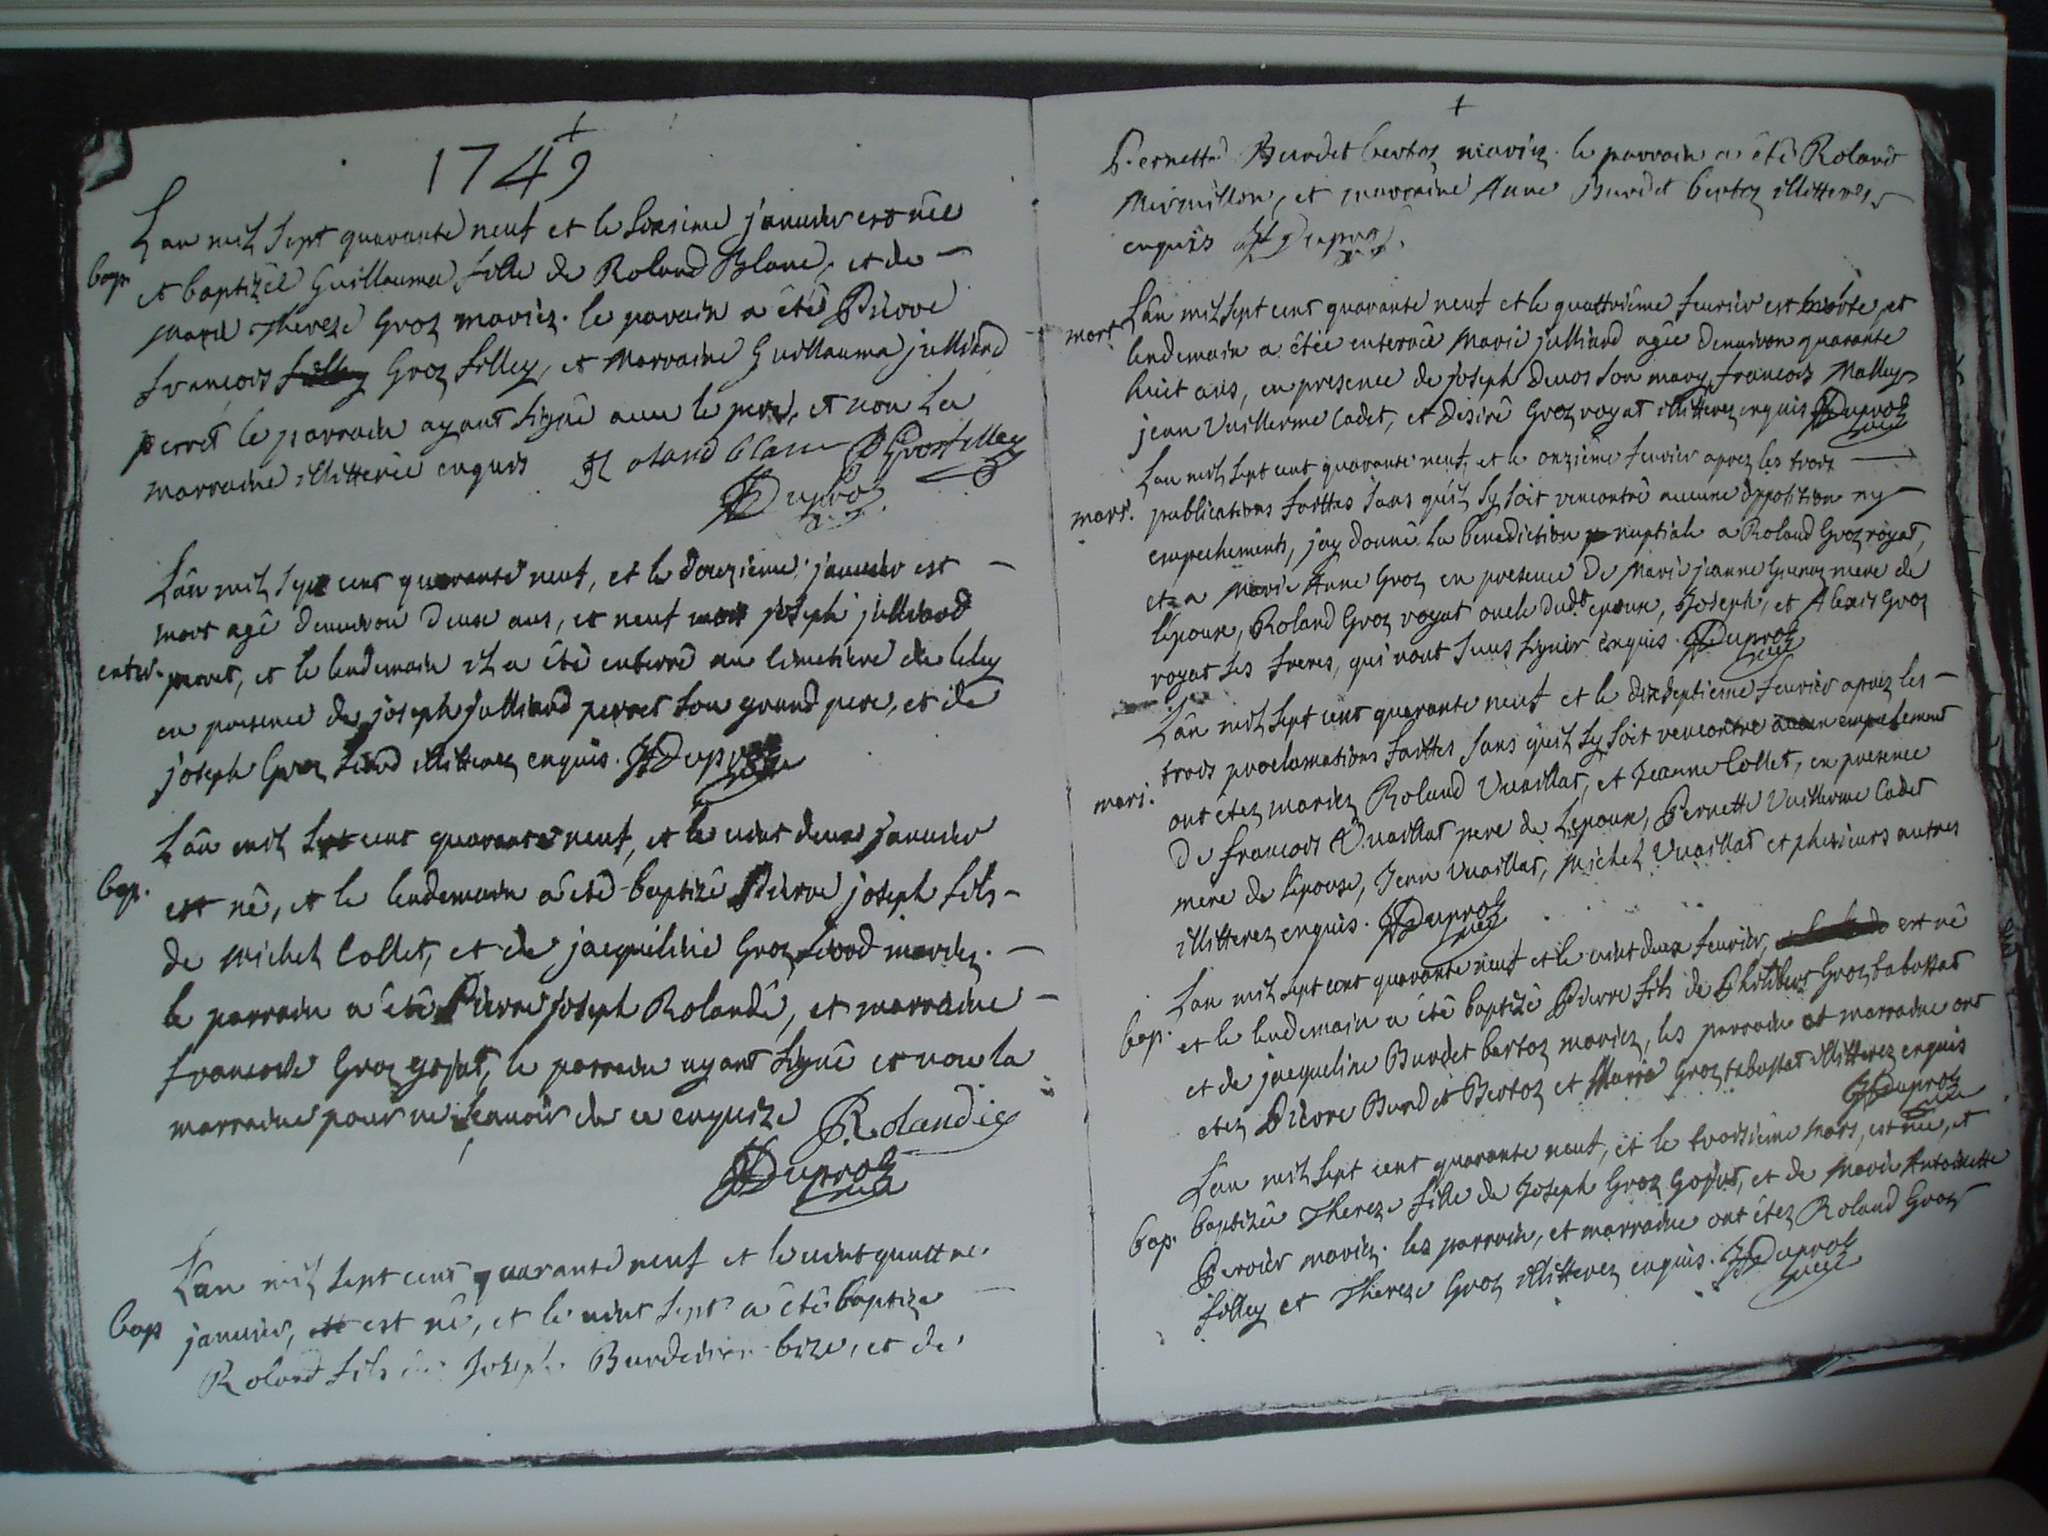 1749
L'an mil sept quarante neuf et le sixsieme janvier est née
bap. et baptizée Guillauma fille de Roland Blanc, et de
Marie Thereze Groz mariez. le parain a été Pierre
francois Groz filley, et Marraine Guillauma julliard
perret le parrain ayant signé avec le pere, et non la
marraine illitterée enquis Roland blanc P Grosfilley
Duproz
L'an mil sept cent quarante neuf, et le douzieme janvier est
mort agé d'environ deux ans, et neuf mois joseph julliard
enter. perret, et le lendemain il a été enterré au cimetiere de
en presence de joseph julliard perret son grand pere, et de
joseph Groz illitterez enquis. Duproz
L'an mil sept cent quarante neuf, et le vint deux janvier
bap. est né, et le lendemain a été baptizé Pierre joseph fils
de Michel Collet, et de jacqueline Groz mariez.
le parrain a été Pierre joseph Rolandé, et marraine
francoise Groz gojat, le parrain ayant signé et non la
marraine pour ne scavoir de ce enquize Rolandé
Duproz curé
L'an mil sept cent quarante neuf et le vint quattre
bap janvier, est né, et le vint sept a été baptize
Roland fils de Joseph Burdet bize, et de
Pernette Burdet bertoz mariez. le parrain a été Roland
Mermillon, et marraine Anne Burdet bertoz illitterez
enquis Duproz.
L'an mil sept cent quarante neuf et le quattrieme fevrier est morte, et
mort lendemain a étée enterrée Marie julliard agée d'environ quarante
huit ans, en presence de joseph son mary, francois Malley
jean Vuillerme Cadet, et desiré Groz royat illitterez enquis Duproz curé
L'an mil sept cent quarante neuf, et le onzieme fevrier aprez les trois
mari. publications faittes sans qu'il s'y soit rencontré aucune oppotition ny
empechements, j'ay donné la benediction nuptiale a Roland Groz royat,
et a Marie Anne Groz en presence de Marie jeanne mere de
l'epoux, Roland Groz royat oncle dudt epoux, Joseph, et Alexis Groz
royat ses freres, qui n'ont sceus signer enquis. Duproz curé
L'an mil sept cent quarante neuf et le dixseptieme fevrier aprez les
trois proclamations faittes sans qu'il s'y soit rencontré aucun empechement
mari. ont étez mariez Roland Vuaillat, et Jeanne Collet, en presence
de francois Vuaillat pere de L'epoux, Pernette Vuillerme Cadet
mere de l'epouse, Jean Vuaillat, Michel Vuaillat et plusieurs autres
illitterez enquis. Duproz curé
L'an mil sept cent quarante neuf et le vint deux fevrier, est né
bap. et le lendemain a été baptizé Pierre fils de Philibert Groz tabussat
et de jacqueline Burdet bertoz mariez, les parrain et marraine ont
étez Pierre Burdet Bertoz et Marie Groz tabussat illitterez enquis
Duproz curé
L'an mil sept cent quarante neuf, et le troisieme Mars, est née, et
bap. baptizée Thereze fille de Joseph Groz Gojat, et de Marie Antoinette
Perrier mariez. les parrain, et marraine ont étez Roland Groz
filley et Thereze Groz illitterez enquis. Duproz curé